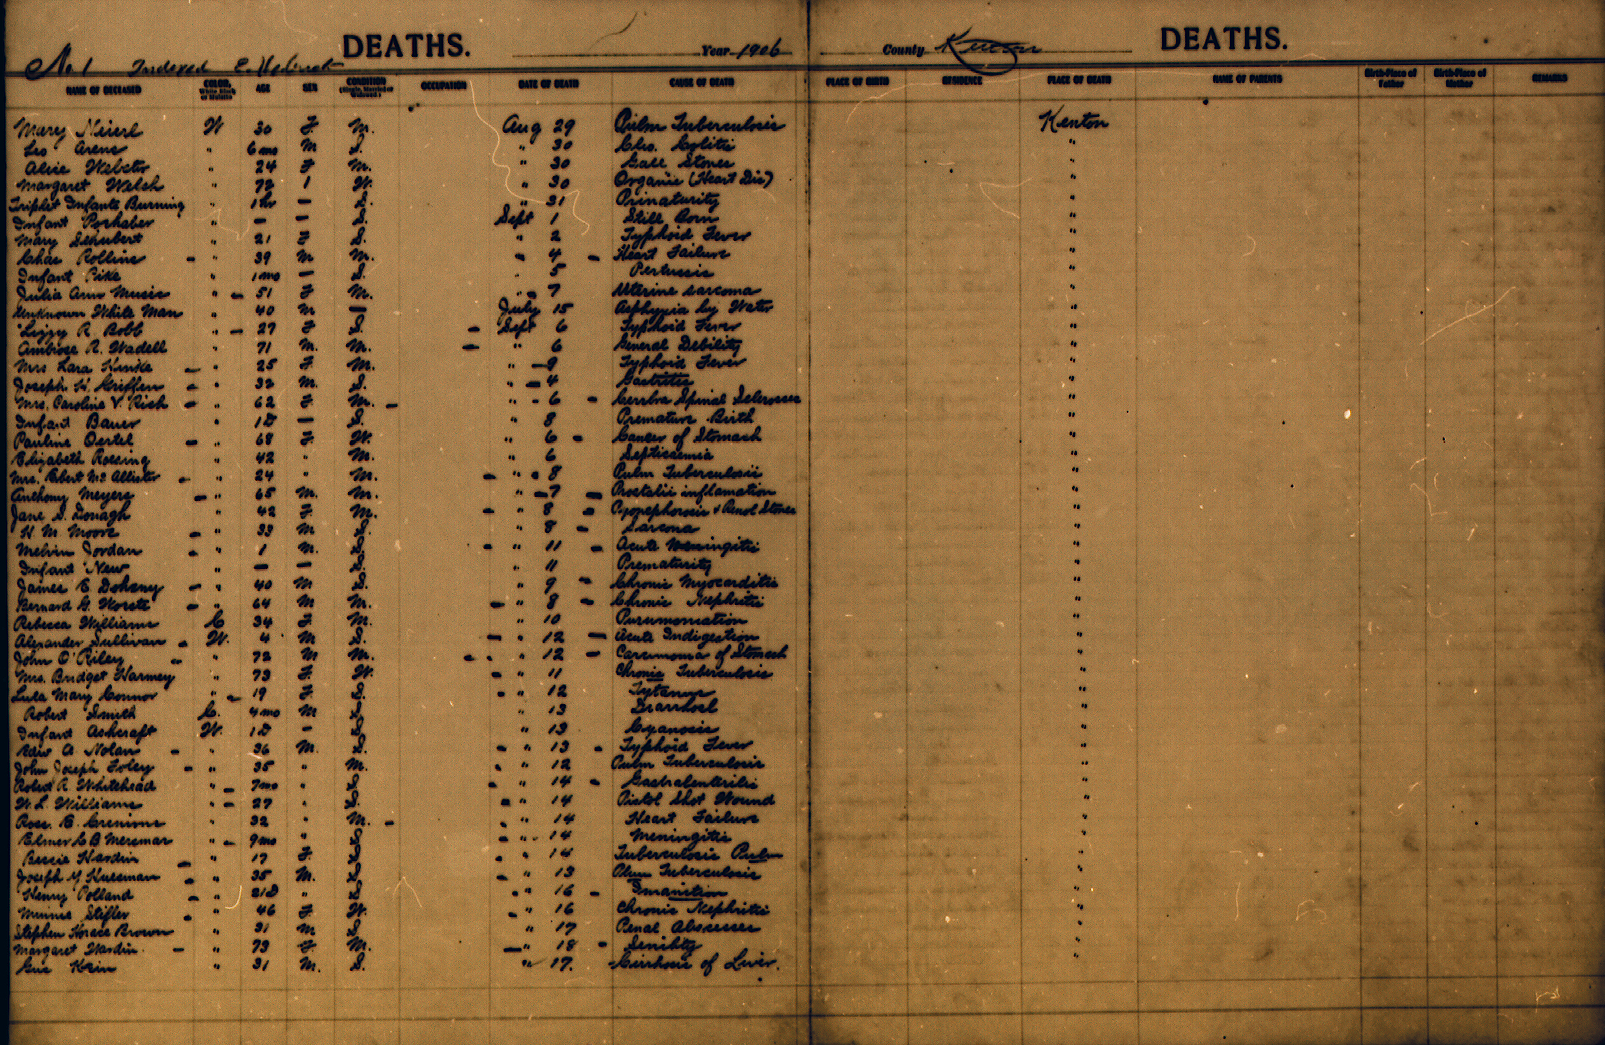 DEATHS. Year 1906 County Kenton DEATHS.
No. 1 Indexed
NAME OF DECEASED COLOR White, Black or Mulatto AGE SEX CONDITION (Single, Married or Widowed) OCCUPATION DATE OF DEATH CAUSE OF DEATH PLACE OF BIRTH RESIDENCE PLACE OF DEATH NAME OF PARENTS Birth-Place of Father Birth-Place of Mother REMARKS
Mary W 30 F. M. Aug 29 Pulm Tuberculosis Kenton
Leo Arens " 6 mo M S. " 30 Colitis "
Alice Webster " 24 F M. " 30 Gall Stones "
Margaret Welch " W. " 30 Organic (Heart Dis) "
Triplet Infants Burning " 1 hr — S. " 31 Prematurity "
Infant " — — S. Sept 1 Still Born "
Mary Schubert " 21 F S. " 2 Typhoid Fever "
Chas Rollins " 39 M M. " 4 Heart Failure "
Infant Pike " 1 mo — S. " 5 Pertussis "
Julia Ann Music " 51 F M. " 7 Uterine Sarcoma "
Unknown White Man " 40 M — July 15 Asphyxia by Water "
Lizzy R. Robb " 27 F S. Sept 6 Typhoid Fever "
Ambrose R. Wadell " 71 M. M. " 6 General Debility "
Mrs Lara " 25 F. M. " 9 Typhoid Fever "
Joseph H. Griffen " 32 M. S. " 4 Gastritis "
Mrs. Caroline V. Rich " 62 F. M. " 6 Spinal "
Infant Bauer " 1 D — S. " 8 Premature Birth "
Pauline Oertel " 68 F. W. " 6 Cancer of Stomach "
Elizabeth Roesing " 42 " M. " 6 Septicemia "
Mrs. Robert Mc Allister " 24 " M. " 8 Pulm Tuberculosis "
Anthony Meyers " 65 M. M. " 7 inflamation "
Jane S. Donagh " 42 F. M. " 8 "
H. M. Moore " 33 M S. " 8 Sarcoma "
Melvin Jordan " 1 M. S. " 11 Acute Meningitis "
Infant New " — — S. " 11 Prematurity "
James E Doheny " 40 M S. " 9 Chronic Myocarditis "
Bernard G. " 64 M M. " 8 Chronic Nephritis "
Rebecca Williams C 34 F. M. " 10 "
Alexander Sullivan W. 4 M S. " 12 Acute Indigestion "
John O'Riley " M M. " 12 Carcinoma of Stomach "
Mrs. Bridget " 73 F. W. " 11 Chronic Tuberculosis "
Lula Mary Connor " 19 F. S. " 12 "
Robert Smith C. 4 mo M S " 13 "
Infant Ashcraft W. 1 D — S " 13 Cyanosis "
Edw A Nolan " 36 M. S. " 13 Typhoid Fever "
John Joseph Foley " 35 " M. " 12 Pulm Tuberculosis "
Robert R Whitehead " 7 mo " S " 14 "
W. L. Williams " 27 " S. " 14 Pistol Shot Wound "
" 32 " M. " 14 Heart Failure "
Elmer " 9 mo " S " 14 Meningitis "
Bessie Hardin " 17 F. S " 14 Tuberculosis Pulm "
Joseph " 35 M. S " 13 Tuberculosis "
Henry Polland " 21 D " S " 16 Inanition "
Minnie Stifler " 46 F. W. " 16 Chronic Nephritis "
Stephen Horace Brown " 31 M S. " 17 Abscesses "
Margaret Hardin " 73 F. M. " 18 "
" 31 M. S. " 17. Cirrhosis of Liver. "